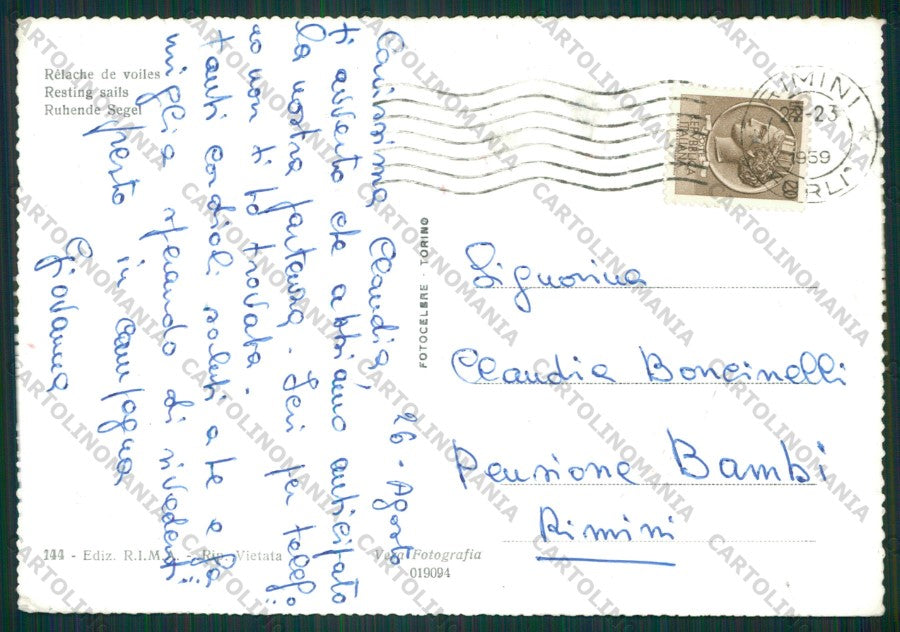 Rélache de voiles
Resting sails
Ruhende Segel
Carissima Claudia, 26 - Agosto
ti avverto che abbiamo anticipato
la nostra partenza. Ieri per telefo=
no non ti ho trovata.
tanti cordiali saluti a te e fa=
miglia sperando di rivederti
presto in campagna
Giovanna
144 - Ediz. R.I.M. - Rip. Vietata
Vera Fotografia
019094
FOTOCELERE - TORINO
RIMINI
23
1959
20
Signorina
Claudia Boncinelli
Pensione Bambi
Rimini
CARTOLINOMANIA